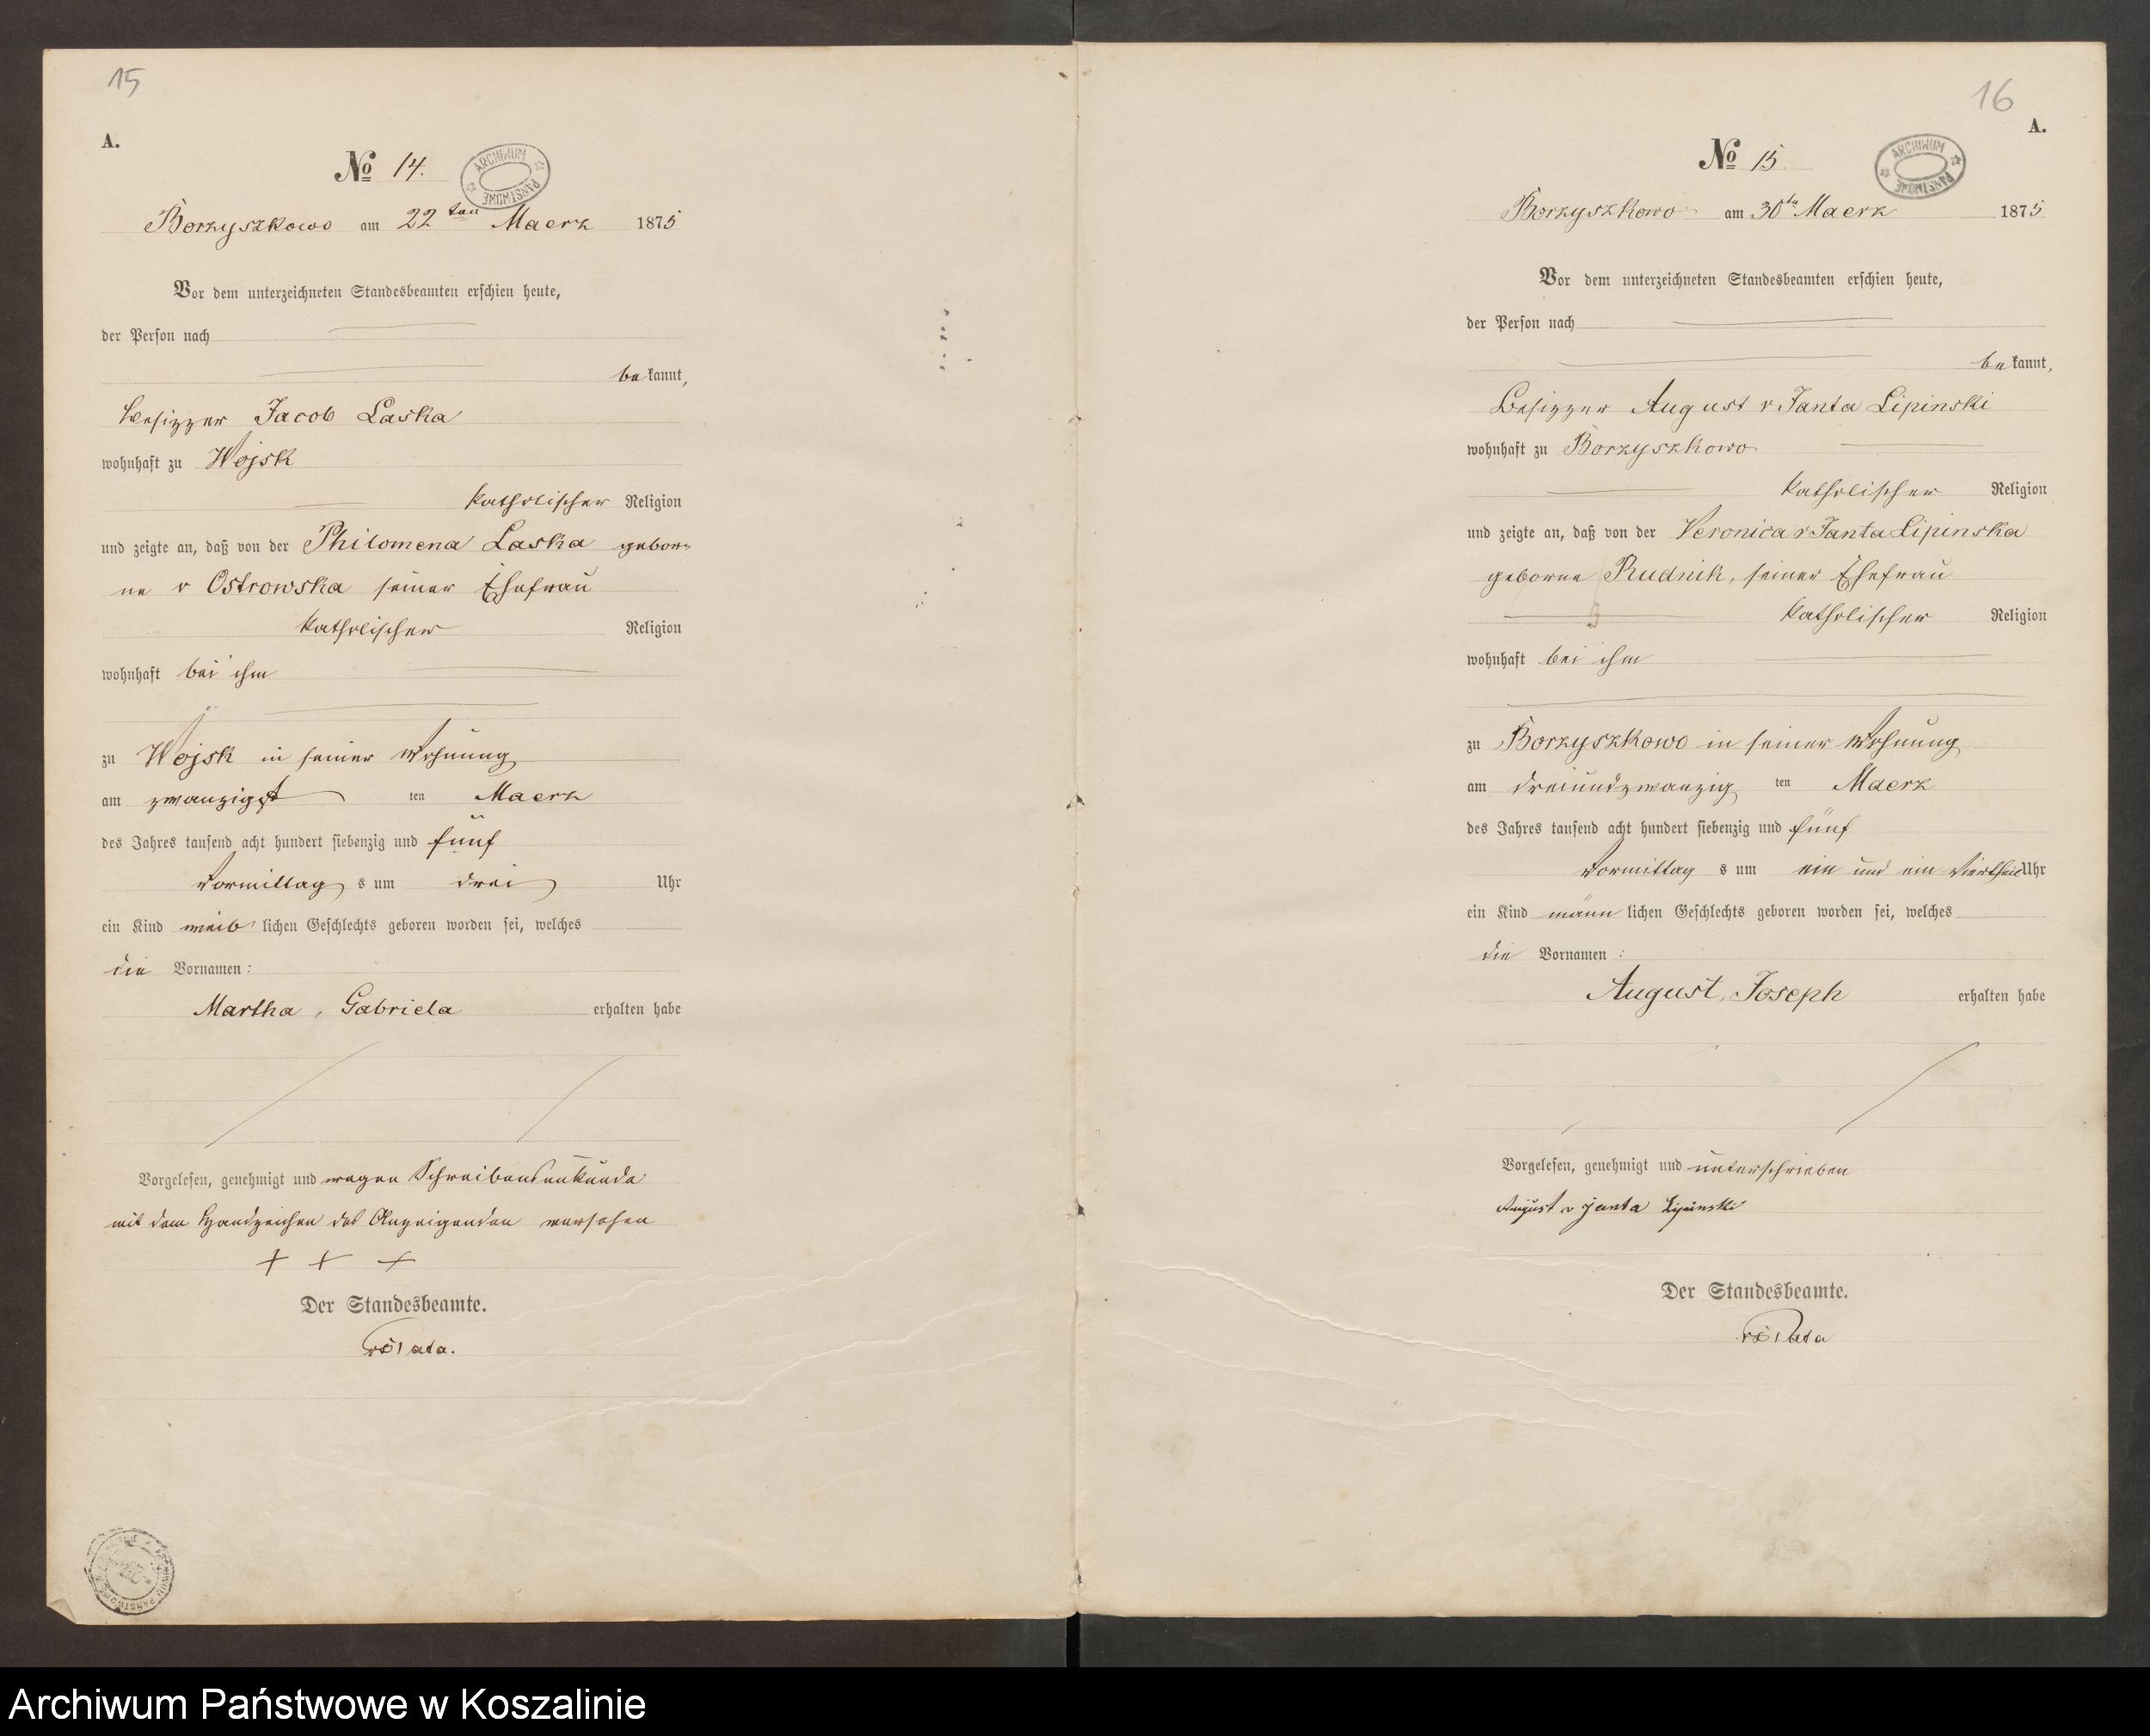 15
A.
ARCHIWUM PAŃSTWOWE
No 14.
Borzyszkowo am 22ten Maerz 1875
Vor dem unterzeichneten Standesbeamten erschien heute,
der Person nach
bekannt,
Besizzer Jacob Laska
wohnhaft zu Wojsk
katholischer Religion
und zeigte an, daß von der Philomena Laska gebor-
ne v Ostrowska seiner Ehefrau
katholischer Religion
wohnhaft bei ihm
zu Wojsk in seiner Wohnung
am zwanzigst ten Maerz
des Jahres tausend acht hundert siebenzig und fünf
Vormittag s um drei Uhr
ein Kind weib lichen Geschlechts geboren worden sei, welches
die Vornamen:
Martha, Gabriela erhalten habe
Vorgelesen, genehmigt und wegen Schreibensunkunde
mit dem Handzeichen des Anzeigenden versehen
+ + +
Der Standesbeamte.
16
A.
ARCHIWUM PAŃSTWOWE
No 15
Borzyszkowo am 30te Maerz 1875
Vor dem unterzeichneten Standesbeamten erschien heute,
der Person nach
bekannt,
Besizzer August v Janta Lipinski
wohnhaft zu Borzyszkowo
katholischer Religion
und zeigte an, daß von der Veronica v Janta Lipinska
geborne Rudnik, seiner Ehefrau
katholischer Religion
wohnhaft bei ihm
zu Borzyszkowo in seiner Wohnung
am dreiundzwanzig ten Maerz
des Jahres tausend acht hundert siebenzig und fünf
Vormittag s um ein und ein Viertheil Uhr
ein Kind männ lichen Geschlechts geboren worden sei, welches
die Vornamen:
August, Joseph erhalten habe
Vorgelesen, genehmigt und unterschrieben
August v Janta Lipinski
Der Standesbeamte.
Archiwum Państwowe w Koszalinie